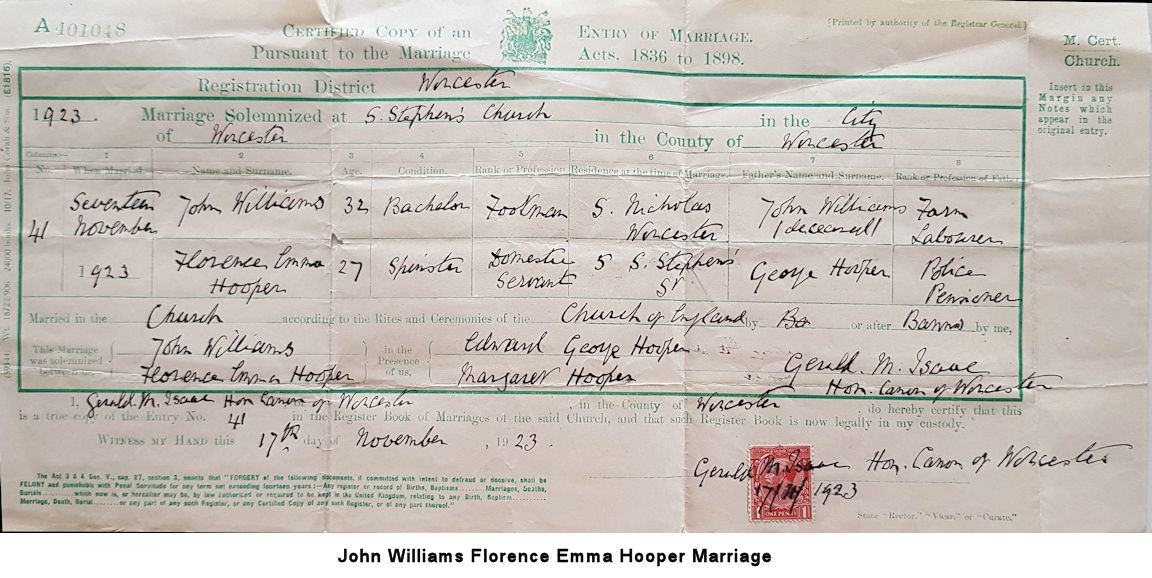 A 401048
CERTIFIED COPY of an ENTRY OF MARRIAGE.
Pursuant to the Marriage Acts, 1836 to 1898.
[Printed by authority of the Registrar General.]
M. Cert.
Church.
Insert in this
Margin any
Notes which
appear in the
original entry.
Registration District Worcester
1923. Marriage Solemnized at S. Stephen's Church in the City
of Worcester in the County of Worcester
Columns:— 1 2 3 4 5 6 7 8
No. When Married. Name and Surname. Age. Condition. Rank or Profession. Residence at the time of Marriage. Father's Name and Surname. Rank or Profession of Father.
41 Seventeen November 1923
John Williams 32 Bachelor Footman S. Nicholas Worcester John Williams (deceased) Farm Labourer
Florence Emma Hooper 27 Spinster Domestic Servant 5 S. Stephens' St George Hooper Police Pensioner
Married in the Church according to the Rites and Ceremonies of the Church of England by or after Banns by me,
This Marriage was solemnized between us, John Williams Florence Emma Hooper in the Presence of us, Edward George Hooper Margaret Hooper Gerald. M. Isaac Hon. Canon of Worcester
I, Gerald. M. Isaac Hon Canon of Worcester, in the County of Worcester, do hereby certify that this
is a true copy of the Entry No. 41 in the Register Book of Marriages of the said Church, and that such Register Book is now legally in my custody.
WITNESS MY HAND this 17th day of November, 1923.
Gerald M. Isaac Hon. Canon of Worcester
17/11/1923
ONE PENNY
State "Rector," "Vicar," or "Curate."
The Act 3 & 4 Geo. V., cap. 27, section 3, enacts that "FORGERY of the following documents, if committed with intent to defraud or deceive, shall be
FELONY and punishable with Penal Servitude for any term not exceeding fourteen years:—Any register or record of Births, Baptisms......... Marriages, Deaths,
Burials......... which now is, or hereafter may be, by law authorised or required to be kept in the United Kingdom, relating to any Birth, Baptism.........
Marriage, Death, Burial.........or any part of any such Register, or any Certified Copy of any such Register, or of any part thereof."
John Williams Florence Emma Hooper Marriage